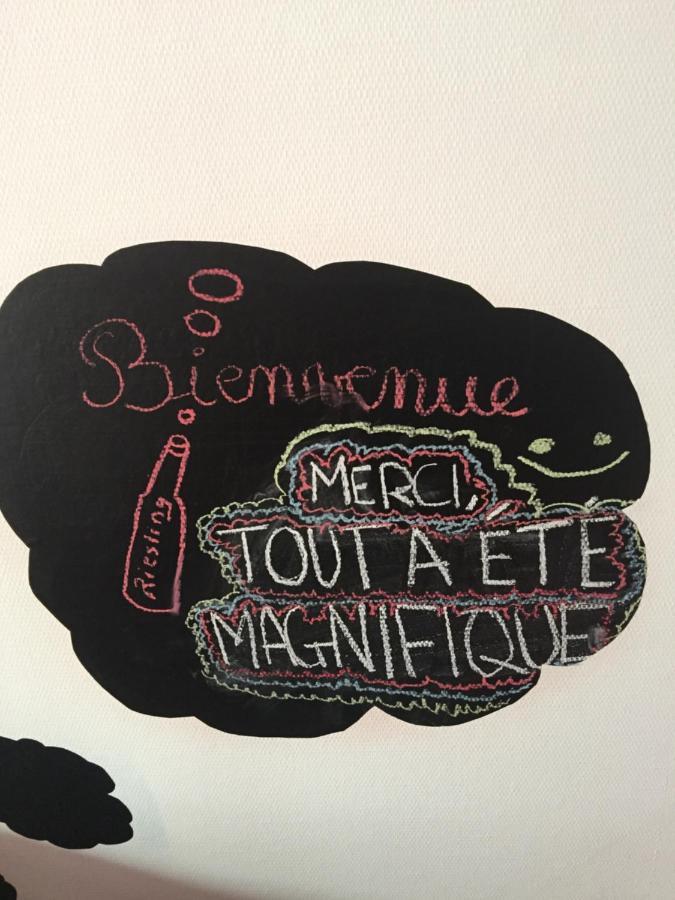 Bienvenue
Riesting
MERCI,
TOUT A ÉTÉ
MAGNIFIQUE